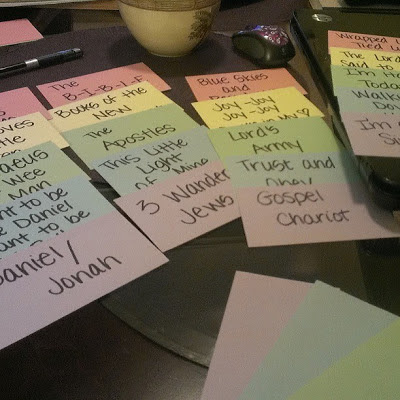 oves
tle
aeus
Wee
Man
nt to be
e Daniel
ant to be
Daniel/
Jonah
The
B-I-B-L-E
Books of the
New
The
Apostles
This Little
Light
of Mine
3 Wander
Jews
Blue Skies
and
Joy-Joy
Joy-Joy
Lord's
Army
Trust and
Obey/
Gospel
Chariot
Wrapped U
Tied U
The Lord
Said to
I'm Ha
Today
Walk
Da
I'm
Su